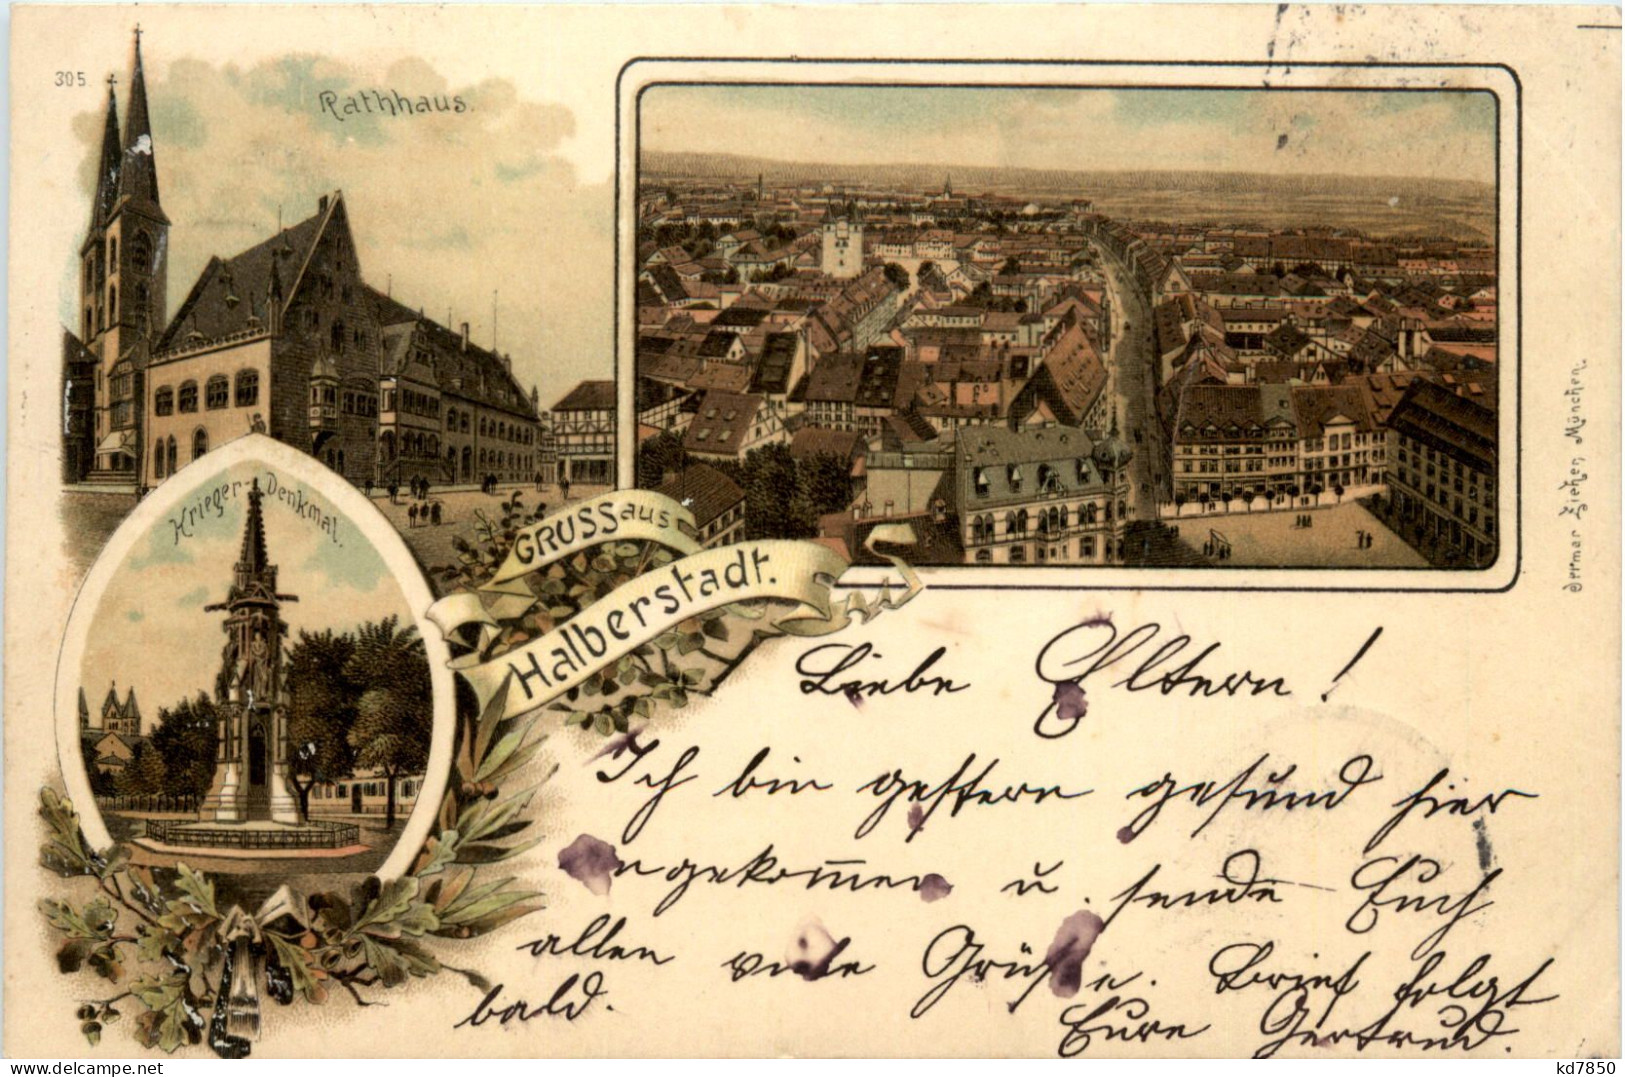 305
Rathhaus.
Krieger-Denkmal.
GRUSS aus
Halberstadt.
Liebe Eltern!
Ich bin gestern gesund hier
angekom̅en u. sende Euch
allen viele Grüße. Brief folgt
bald.
Eure Gertrud.
Ottmar Ziehen, München.
kd7850